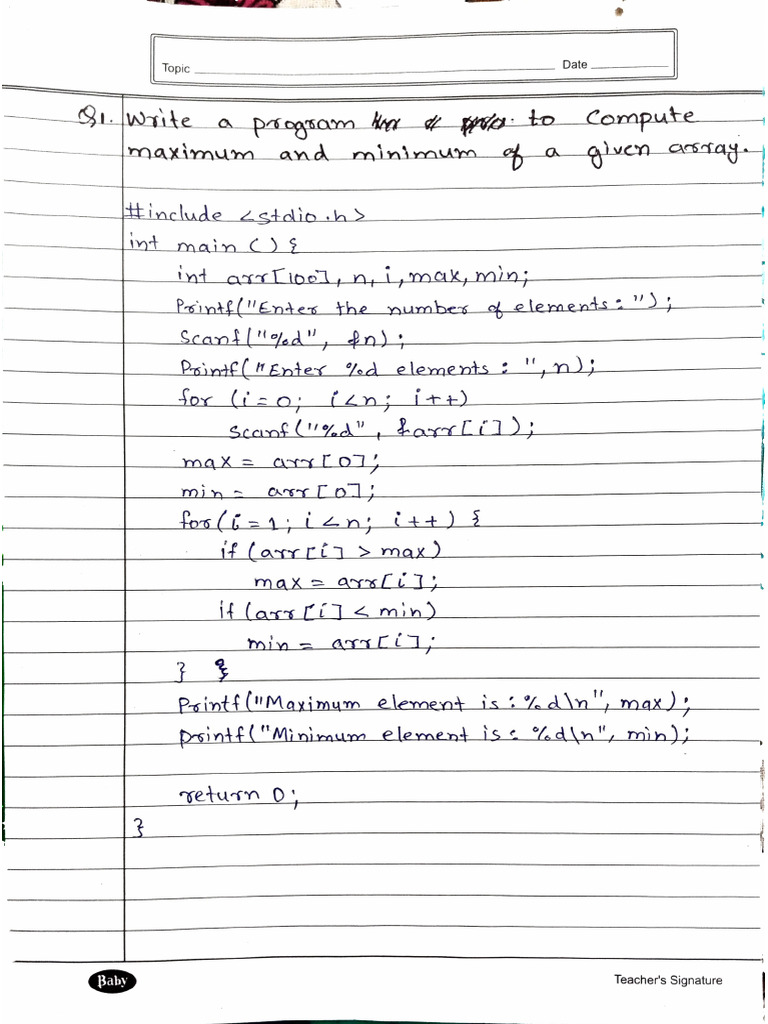 Topic
Date
Q1. Write a program to compute
maximum and minimum of a given array.
#include <stdio.h>
int main () {
int arr[100], n, i, max, min;
Printf("Enter the number of elements: ");
Scanf("%d", &n);
Printf("Enter %d elements: ", n);
for (i=0; i<n; i++)
scanf("%d", &arr[i]);
max = arr[0];
min = arr[0];
for(i=1; i<n; i++) {
if (arr[i] > max)
max = arr[i];
if (arr[i] < min)
min = arr[i];
}
Printf("Maximum element is: %d\n", max);
printf("Minimum element is: %d\n", min);
return 0;
}
Baby
Teacher's Signature